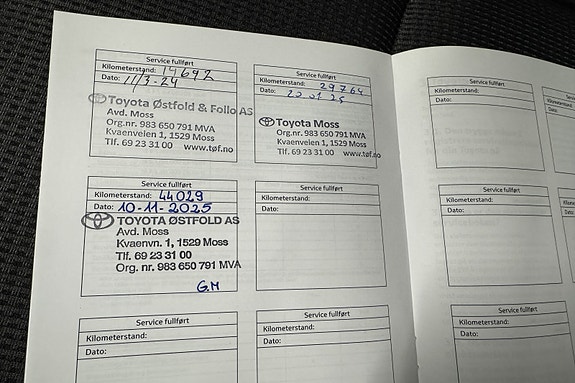 Service fullført
Kilometerstand: 14692
Dato: 11/3-24
Toyota Østfold & Follo AS
Avd. Moss
Org.nr. 983 650 791 MVA
Kvaenveien 1, 1529 Moss
Tlf. 69 23 31 00 www.tøf.no
Service fullført
Kilometerstand: 29764
Dato: 20.01.25
Toyota Moss
Org.nr. 983 650 791 MVA
Kvaenveien 1, 1529 Moss
Tlf. 69 23 31 00 www.tøf.no
Service fullført
Kilometerstand:
Dato:
Service fullført
Kilometerstand: 44029
Dato: 10-11-2025
TOYOTA ØSTFOLD AS
Avd. Moss
Kvaenvn. 1, 1529 Moss
Tlf. 69 23 31 00
Org. nr. 983 650 791 MVA
G.M
Service fullført
Kilometerstand:
Dato:
Service fullført
Kilometerstand:
Dato:
Service fullført
Kilometerstand:
Dato:
Service fullført
Kilometerstand:
Dato:
Service fullført
Kilometerstand:
Dato: